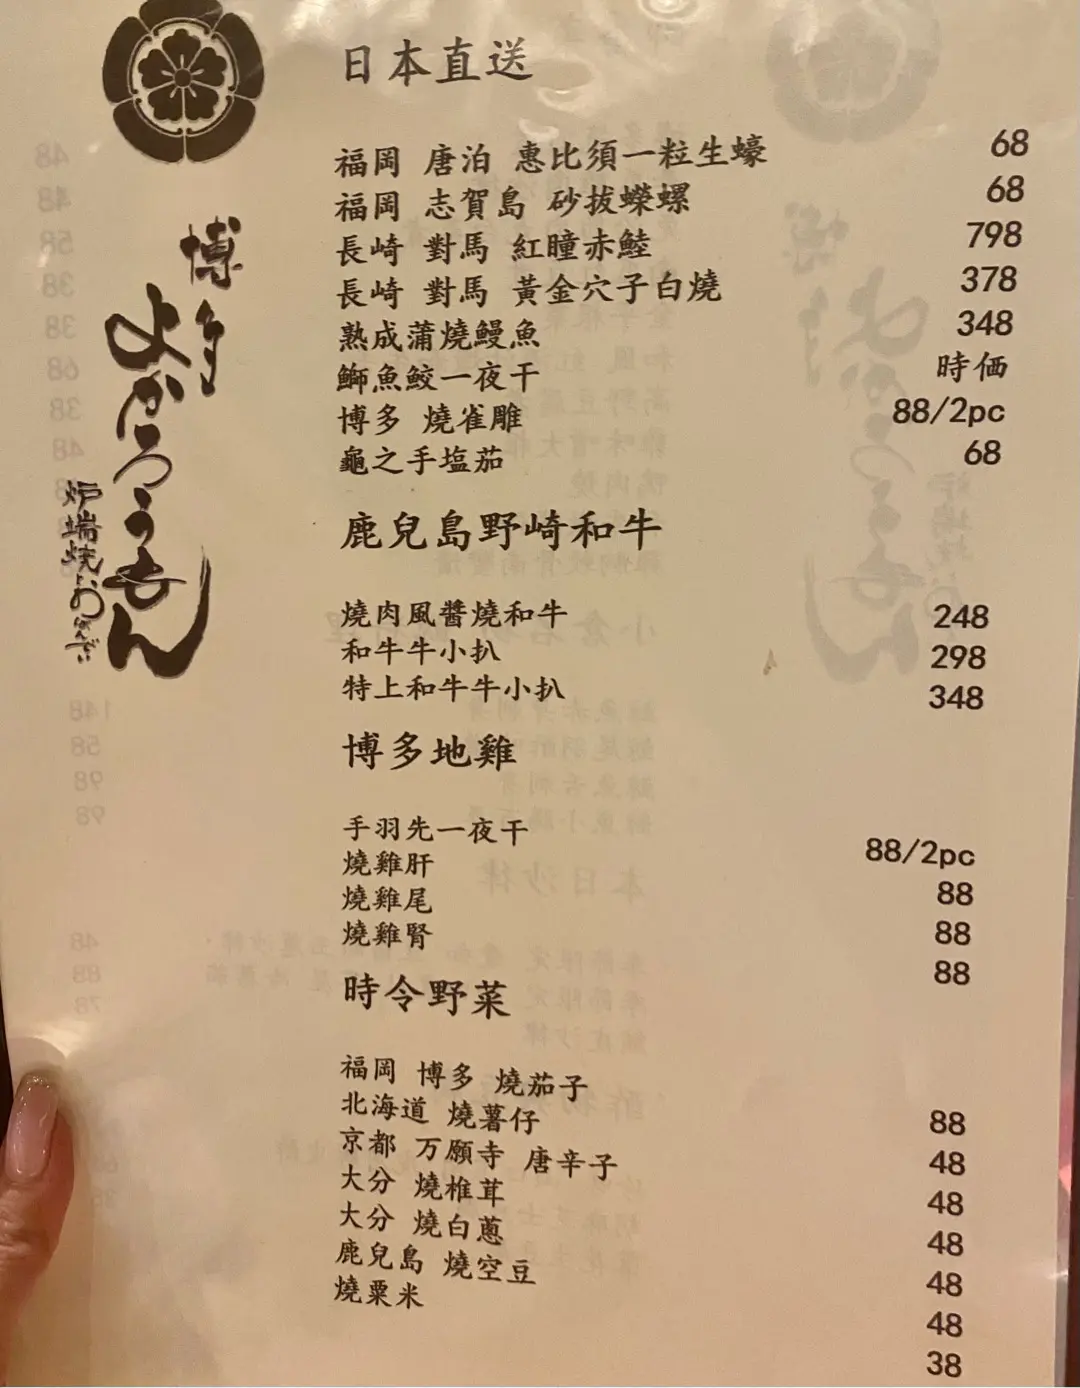 日本直送
福岡 唐泊 惠比須一粒生蠔 68
福岡 志賀島 砂拔蠑螺 68
長崎 對馬 紅瞳赤鯥 798
長崎 對馬 黃金穴子白燒 378
熟成蒲燒鰻魚 348
鰤魚鮫一夜干 時価
博多 燒雀雕 88/2pc
龜之手塩茹 68
鹿兒島野崎和牛
燒肉風醬燒和牛 248
和牛牛小扒 298
特上和牛牛小扒 348
博多地雞
手羽先一夜干 88/2pc
燒雞肝 88
燒雞尾 88
燒雞腎 88
時令野菜
福岡 博多 燒茄子 88
北海道 燒薯仔 48
京都 万願寺 唐辛子 48
大分 燒椎茸 48
大分 燒白蔥 48
鹿兒島 燒空豆 48
燒粟米 38
博多
よかろうもん
炉端焼とおばんざい